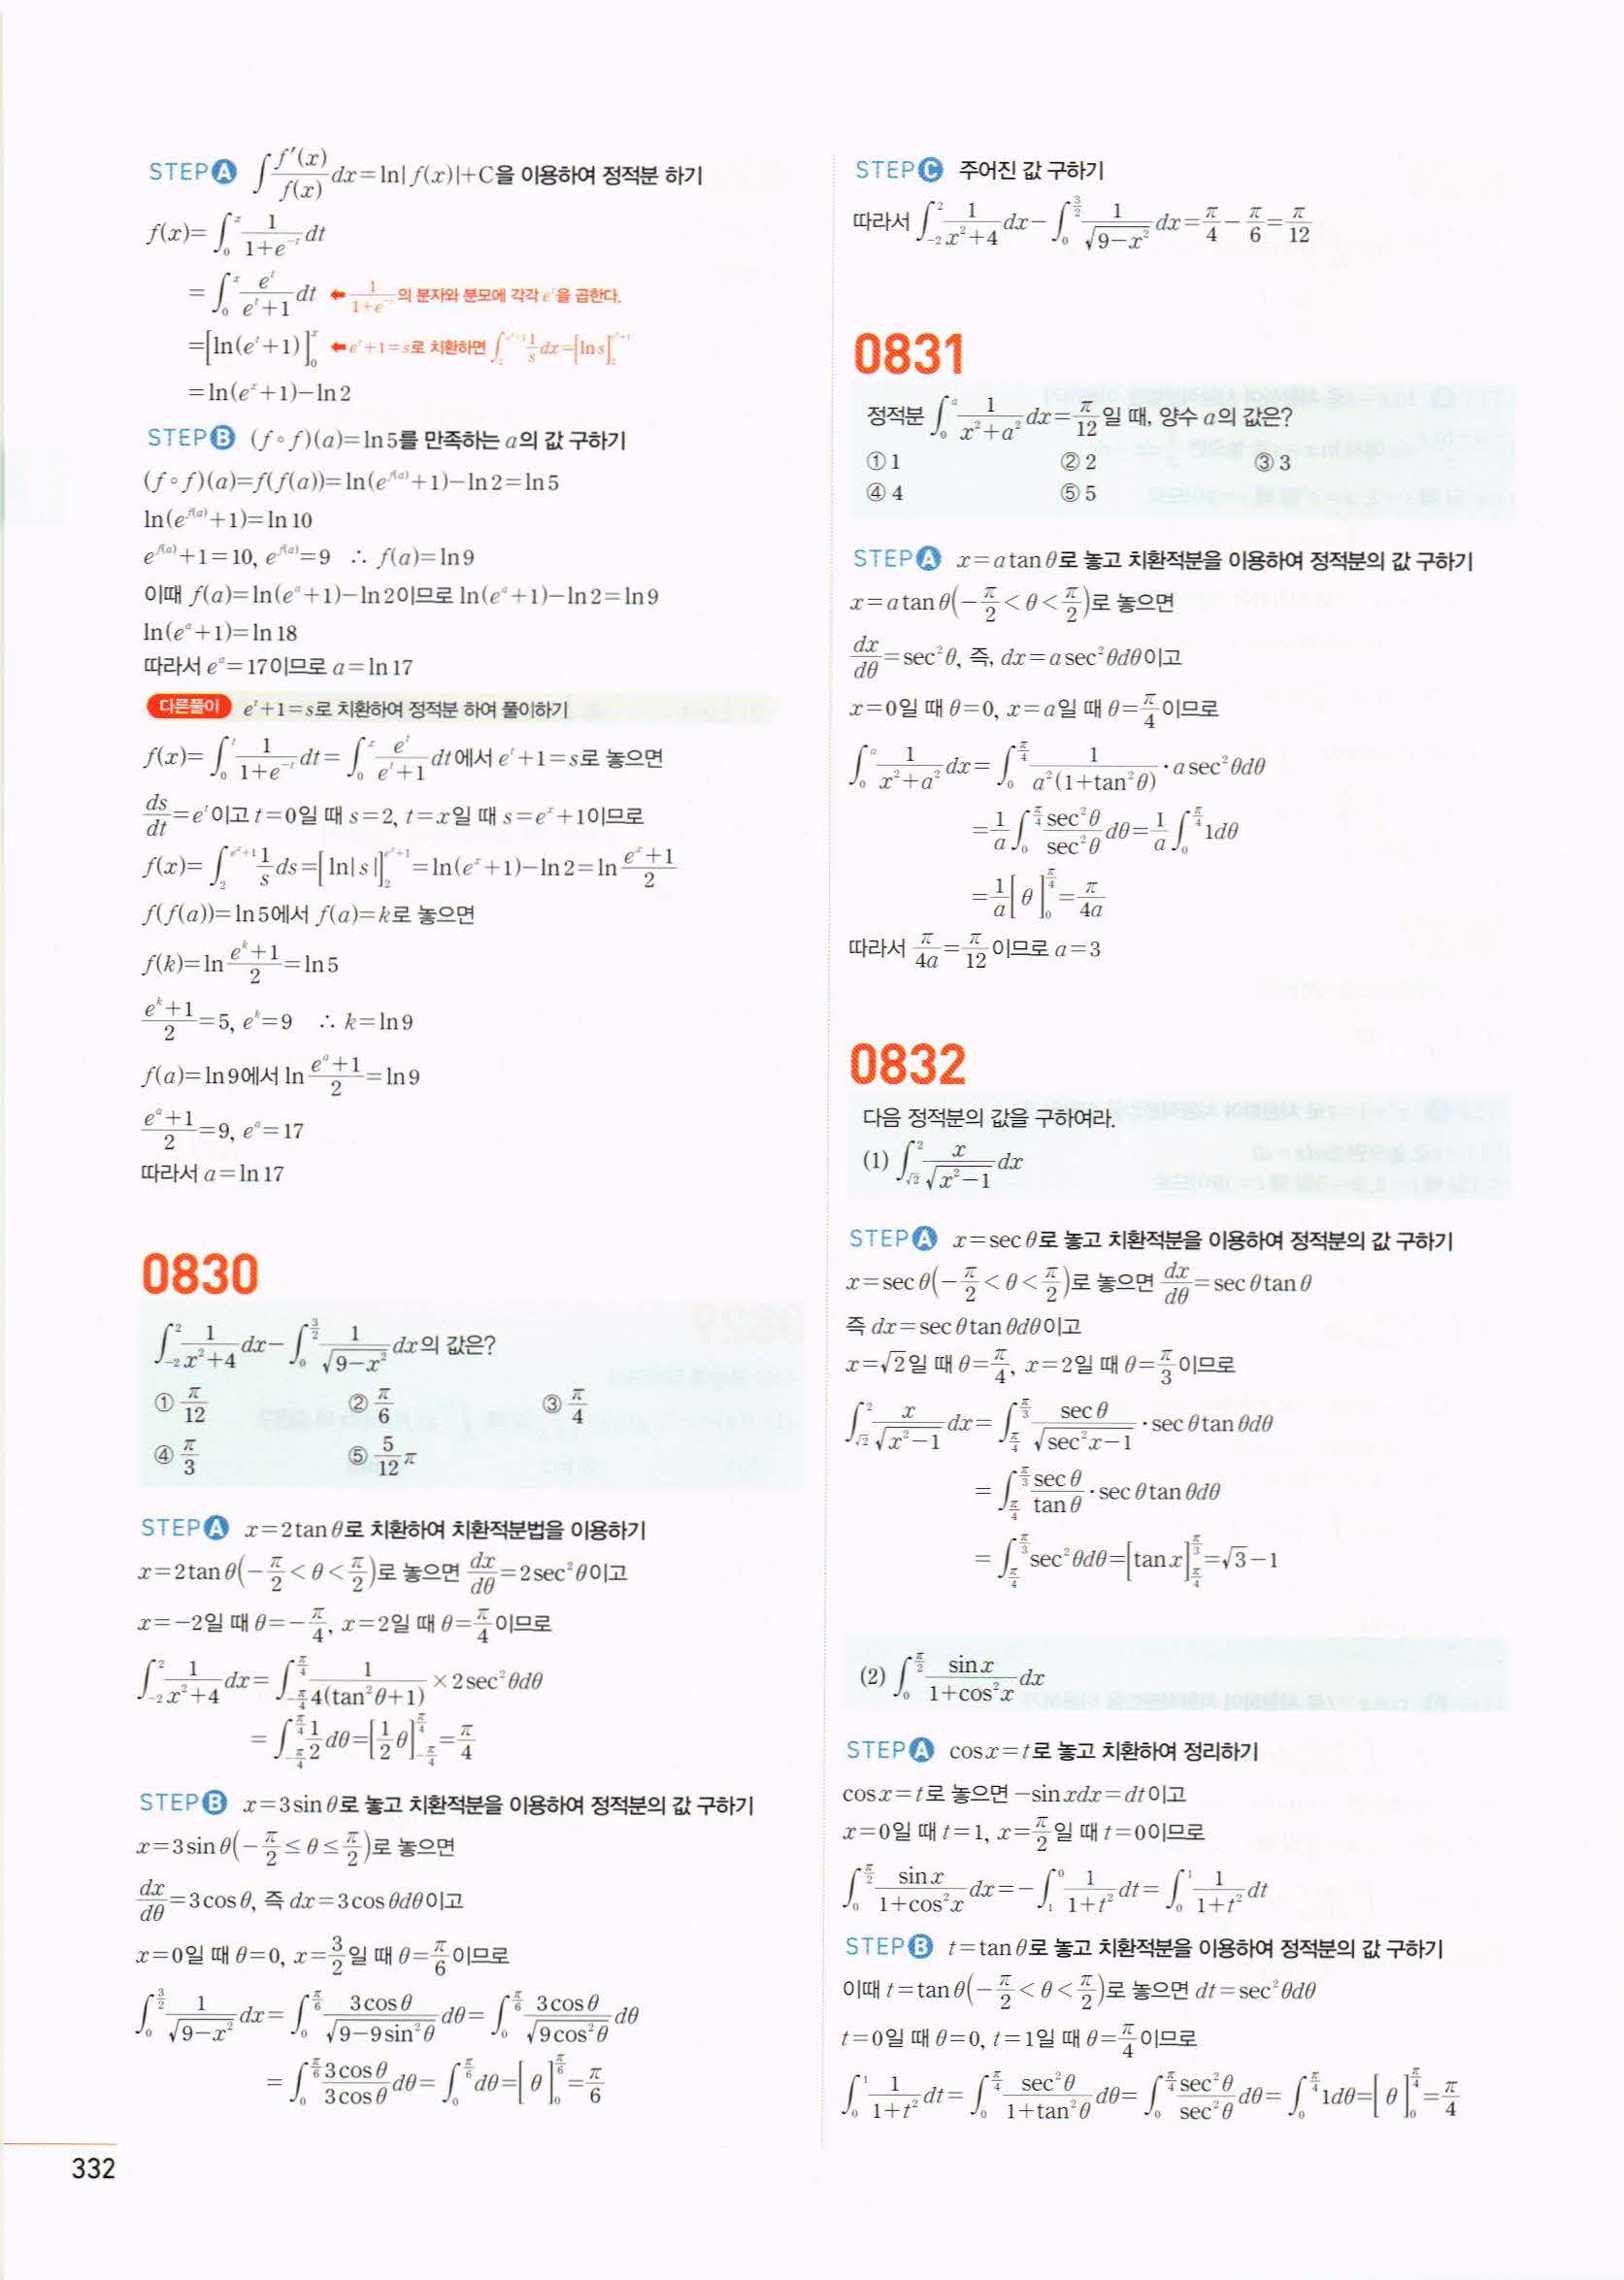 STEP A ∫ f′(x)/f(x) dx=ln|f(x)|+C을 이용하여 정적분 하기
f(x)=∫₀ˣ 1/(1+e⁻ᵗ) dt
=∫₀ˣ eᵗ/(eᵗ+1) dt ← 1/(1+e⁻ᵗ)의 분자와 분모에 각각 eᵗ을 곱한다.
=[ln(eᵗ+1)]₀ˣ ← eᵗ+1=s로 치환하면 ∫₂^(eˣ+1) 1/s dx=[ln s]₂^(eˣ+1)
=ln(eˣ+1)−ln2
STEP B (f∘f)(a)=ln5를 만족하는 a의 값 구하기
(f∘f)(a)=f(f(a))=ln(e^f(a)+1)−ln2=ln5
ln(e^f(a)+1)=ln10
e^f(a)+1=10, e^f(a)=9 ∴ f(a)=ln9
이때 f(a)=ln(eᵃ+1)−ln2이므로 ln(eᵃ+1)−ln2=ln9
ln(eᵃ+1)=ln18
따라서 eᵃ=17이므로 a=ln17
다른풀이 eᵗ+1=s로 치환하여 정적분 하여 풀이하기
f(x)=∫₀ᵗ 1/(1+e⁻ᵗ) dt=∫₀ˣ eᵗ/(eᵗ+1) dt에서 eᵗ+1=s로 놓으면
ds/dt=eᵗ이고 t=0일 때 s=2, t=x일 때 s=eˣ+1이므로
f(x)=∫₂^(eˣ+1) 1/s ds=[ln|s|]₂^(eˣ+1)=ln(eˣ+1)−ln2=ln (eˣ+1)/2
f(f(a))=ln5에서 f(a)=k로 놓으면
f(k)=ln (eᵏ+1)/2=ln5
(eᵏ+1)/2=5, eᵏ=9 ∴ k=ln9
f(a)=ln9에서 ln (eᵃ+1)/2=ln9
(eᵃ+1)/2=9, eᵃ=17
따라서 a=ln17
0830
∫₋₂² 1/(x²+4) dx−∫₀^(3/2) 1/√(9−x²) dx의 값은?
① π/12 ② π/6 ③ π/4
④ π/3 ⑤ 5/12 π
STEP A x=2tanθ로 치환하여 치환적분법을 이용하기
x=2tanθ(−π/2<θ<π/2)로 놓으면 dx/dθ=2sec²θ이고
x=−2일 때 θ=−π/4, x=2일 때 θ=π/4이므로
∫₋₂² 1/(x²+4) dx=∫_(−π/4)^(π/4) 1/(4(tan²θ+1)) ×2sec²θdθ
=∫_(−π/4)^(π/4) 1/2 dθ=[1/2 θ]_(−π/4)^(π/4)=π/4
STEP B x=3sinθ로 놓고 치환적분을 이용하여 정적분의 값 구하기
x=3sinθ(−π/2≤θ≤π/2)로 놓으면
dx/dθ=3cosθ, 즉 dx=3cosθdθ이고
x=0일 때 θ=0, x=3/2일 때 θ=π/6이므로
∫₀^(3/2) 1/√(9−x²) dx=∫₀^(π/6) 3cosθ/√(9−9sin²θ) dθ=∫₀^(π/6) 3cosθ/√(9cos²θ) dθ
=∫₀^(π/6) 3cosθ/3cosθ dθ=∫₀^(π/6) dθ=[θ]₀^(π/6)=π/6
332
STEP C 주어진 값 구하기
따라서 ∫₋₂² 1/(x²+4) dx−∫₀^(3/2) 1/√(9−x²) dx=π/4−π/6=π/12
0831
정적분 ∫₀ᵃ 1/(x²+a²) dx=π/12일 때, 양수 a의 값은?
① 1 ② 2 ③ 3
④ 4 ⑤ 5
STEP A x=atanθ로 놓고 치환적분을 이용하여 정적분의 값 구하기
x=atanθ(−π/2<θ<π/2)로 놓으면
dx/dθ=sec²θ, 즉, dx=asec²θdθ이고
x=0일 때 θ=0, x=a일 때 θ=π/4이므로
∫₀ᵃ 1/(x²+a²) dx=∫₀^(π/4) 1/(a²(1+tan²θ)) · asec²θdθ
=1/a ∫₀^(π/4) sec²θ/sec²θ dθ=1/a ∫₀^(π/4) 1dθ
=1/a [θ]₀^(π/4)=π/4a
따라서 π/4a=π/12이므로 a=3
0832
다음 정적분의 값을 구하여라.
(1) ∫_√2² x/√(x²−1) dx
STEP A x=secθ로 놓고 치환적분을 이용하여 정적분의 값 구하기
x=secθ(−π/2<θ<π/2)로 놓으면 dx/dθ=secθtanθ
즉 dx=secθtanθdθ이고
x=√2일 때 θ=π/4, x=2일 때 θ=π/3이므로
∫_√2² x/√(x²−1) dx=∫_(π/4)^(π/3) secθ/√(sec²x−1) · secθtanθdθ
=∫_(π/4)^(π/3) secθ/tanθ · secθtanθdθ
=∫_(π/4)^(π/3) sec²θdθ=[tanx]_(π/4)^(π/3)=√3−1
(2) ∫₀^(π/2) sinx/(1+cos²x) dx
STEP A cosx=t로 놓고 치환하여 정리하기
cosx=t로 놓으면 −sinxdx=dt이고
x=0일 때 t=1, x=π/2일 때 t=0이므로
∫₀^(π/2) sinx/(1+cos²x) dx=−∫₁⁰ 1/(1+t²) dt=∫₀¹ 1/(1+t²) dt
STEP B t=tanθ로 놓고 치환적분을 이용하여 정적분의 값 구하기
이때 t=tanθ(−π/2<θ<π/2)로 놓으면 dt=sec²θdθ
t=0일 때 θ=0, t=1일 때 θ=π/4이므로
∫₀¹ 1/(1+t²) dt=∫₀^(π/4) sec²θ/(1+tan²θ) dθ=∫₀^(π/4) sec²θ/sec²θ dθ=∫₀^(π/4) 1dθ=[θ]₀^(π/4)=π/4